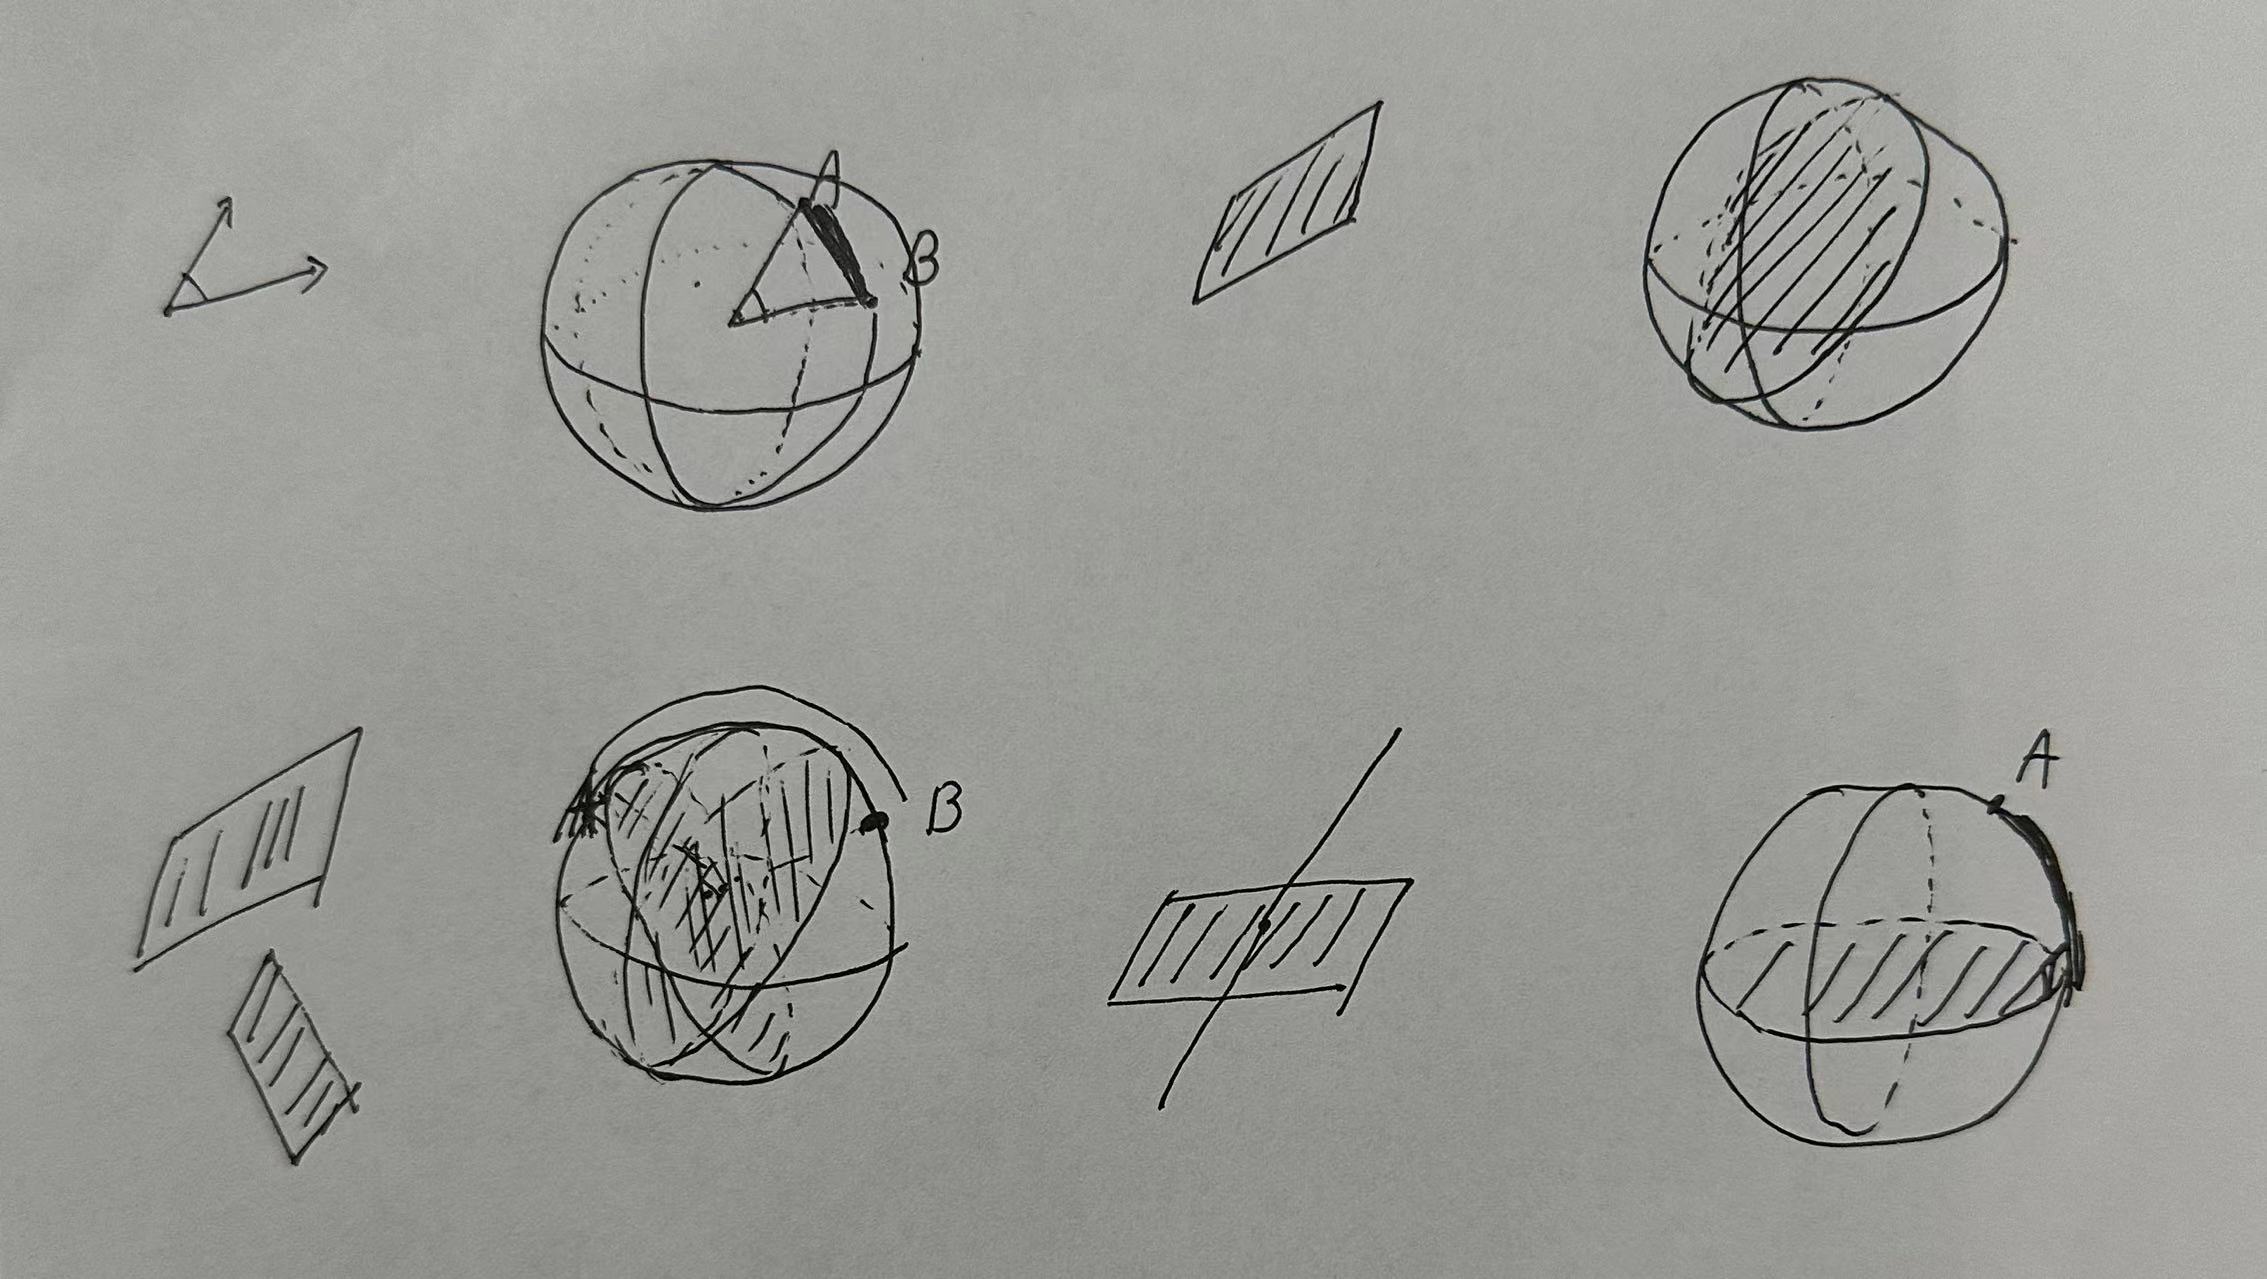 A
B
A
B
A